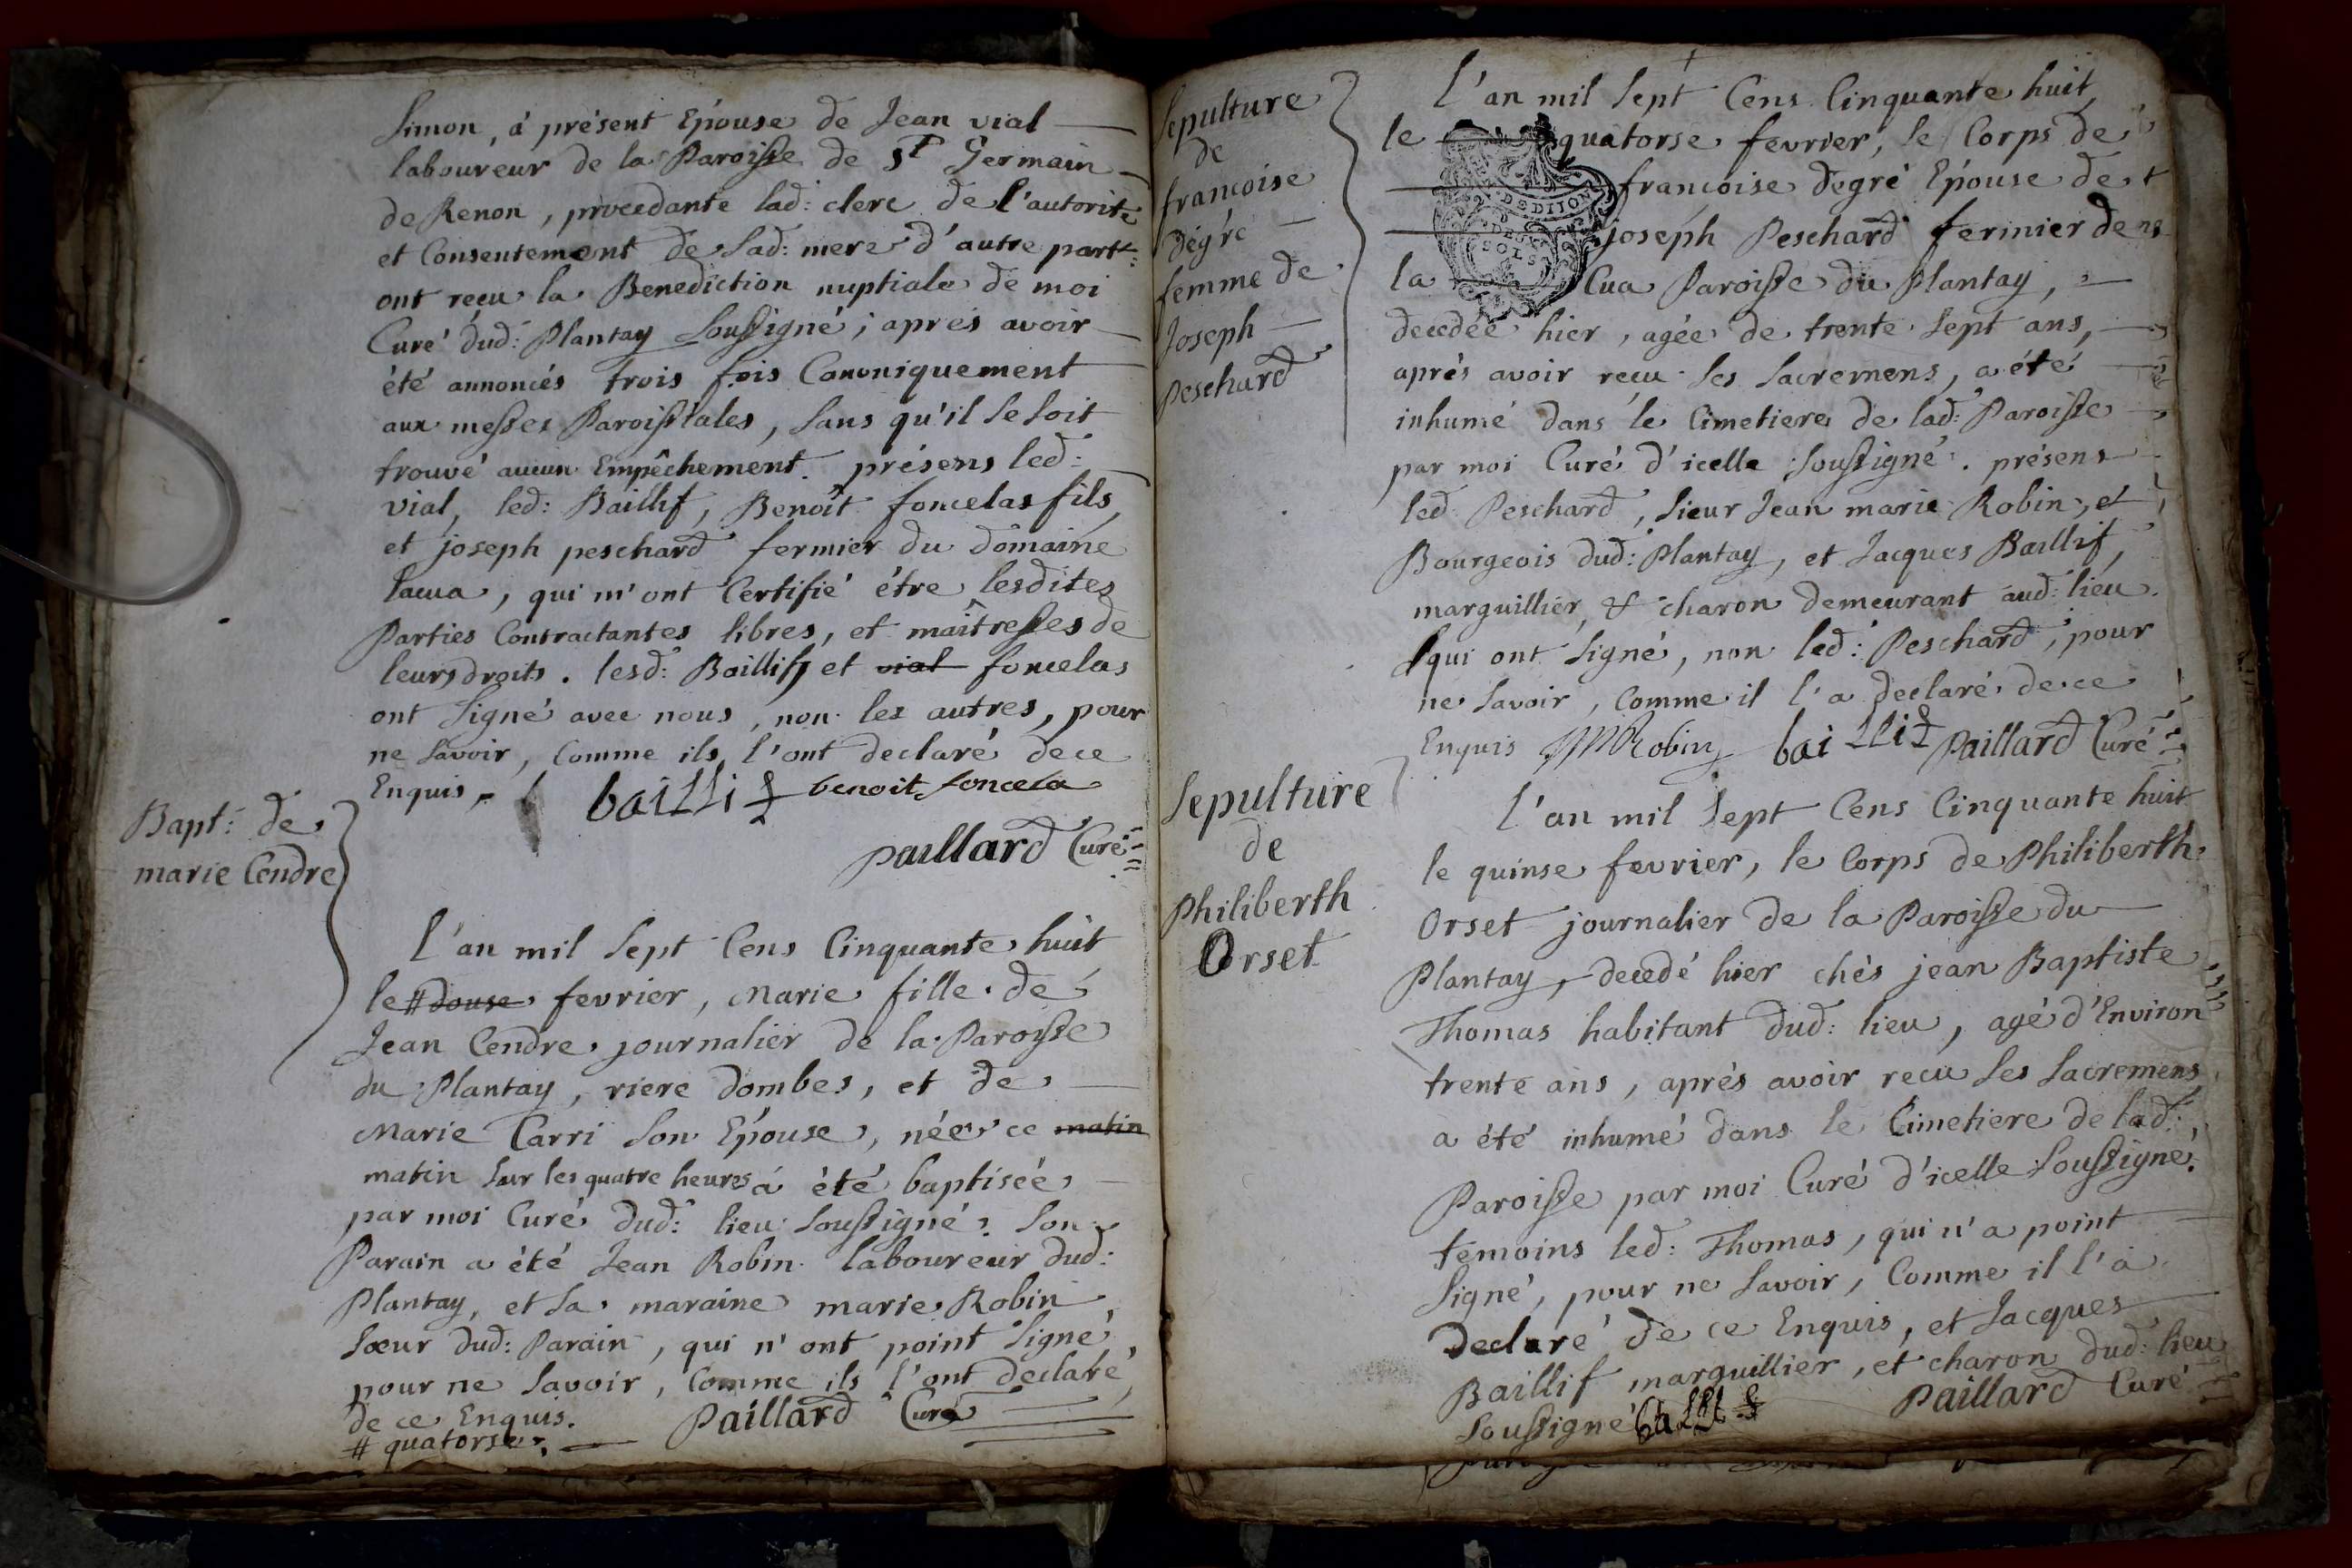 Simon, à présent Epouse de Jean vial
laboureur de la Paroisse de St Germain
de Renon, procedante lad: clerc de l'autorité
et Consentement de sad: mere d'autre part:
ont reçu la Benediction nuptiale de moi
Curé dud: Plantay soussigné; aprés avoir
été annoncés trois fois Canoniquement
aux messes Paroissiales, sans qu'il se soit
trouvé aucun Empêchement. présens led:
vial, led: Baillif, Benoît foncelas fils,
et joseph peschard fermier du domaine
lacua, qui m'ont Certifié être lesdites
Parties Contractantes libres, et maîtresses de
leurs droits. lesd: Baillif et vial foncelas
ont signé avec nous, non les autres, pour
ne savoir, Comme ils l'ont declaré de ce
Enquis,
baillif benoit foncela
paillard Curé
Bapt: de
marie Cendre
L'an mil sept Cens Cinquante huit
le # douse fevrier, Marie fille de
Jean Cendre journalier de la Paroisse
du Plantay, riere dombes, et de
Marie Carri son Epouse, née ce matin
matin sur les quatre heures a été baptisée
par moi Curé dud: lieu soussigné. son
Parain a été Jean Robin laboureur dud:
Plantay, et sa maraine marie Robin
sœur dud: Parain, qui n'ont point signé,
pour ne savoir, Comme ils l'ont declaré,
de ce Enquis. Paillard Curé
# quatorse
Sepulture
de
francoise
dégré
femme de
Joseph
Peschard
L'an mil sept Cens Cinquante huit
le quatorse fevrier, le Corps de
françoise degré Epouse de
joseph Peschard fermier de
la Cua Paroisse du Plantay,
decedée hier, agée de trente sept ans,
aprés avoir reçu les sacremens, a été
inhumé dans le Cimetiere de lad: Paroisse
par moi Curé d'icelle soussigné. présens
led Peschard, sieur Jean marie Robin, et
Bourgeois dud: Plantay, et Jacques Baillif,
marguillier, & charon demeurant aud: lieu.
qui ont signé, non led: Peschard, pour
ne savoir, Comme il l'a declaré de ce
Enquis Robin baillif Paillard Curé
DE DIJON
DEUX
SOLS
Sepulture
de
Philiberth
Orset
L'an mil sept Cens Cinquante huit
le quinse fevrier, le Corps de Philiberth
Orset journalier de la Paroisse du
Plantay, decedé hier chés jean Baptiste
Thomas habitant dud: lieu, agé d'Environ
trente ans, aprés avoir recu les sacremens
a été inhumé dans le Cimetiere de lad:
Paroisse par moi Curé d'icelle soussigné.
témoins led: Thomas, qui n'a point
signé, pour ne savoir, Comme il l'a
declaré de ce Enquis, et Jacques
Baillif marguillier, et charon dud: lieu
soussigné baillif Paillard Curé